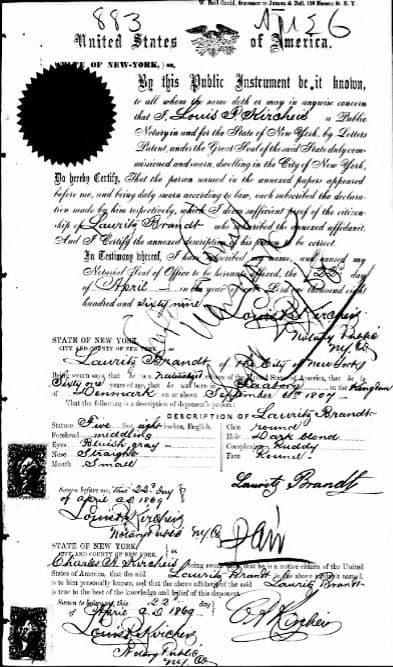 883
W. Reid Gould, Stationer to Jansen & Bell, 158 Nassau St. N. Y.
United States of America.
STATE OF NEW-YORK, ss.
By this Public Instrument be it known,
to all whom the same doth or may in anywise concern
that I, Louis P. Kircheis a Public
Notary in and for the State of New York, by Letters
Patent, under the Great Seal of the said State duly com-
missioned and sworn, dwelling in the City of New York,
Do hereby Certify, That the person named in the annexed papers appeared
before me, and being duly sworn according to law, each subscribed the declara-
tion made by him respectively, which I deem sufficient proof of the citizen-
ship of Lauritz Brandt who subscribed the annexed affidavit.
And I Certify the annexed description of his person to be correct.
In Testimony whereof, I have subscribed my name, and caused my
Notarial Seal of Office to be hereunto affixed, the 22d day
of April in the year of our Lord one thousand eight
hundred and sixty nine
Louis P. Kircheis
Notary Public
N.Y. Co
STATE OF NEW YORK
CITY AND COUNTY OF NEW YORK
Lauritz Brandt of the City of New York
Being sworn says, that he is a naturalized Citizen of the United States of America, that he is
Sixty one years of age, that he was born in in the Kingdom
of Denmark on or about September 1807
That the following is a description of deponent's person:
DESCRIPTION OF Lauritz Brandt
Stature Five feet eight inches, English. Chin round
Forehead meddling Hair Dark blond
Eyes Bluish gray Complexion Ruddy
Nose Straight Face Round
Mouth Small
Lauritz Brandt
Sworn before me, this 22d day
of April AD 1869
Louis P. Kircheis
Notary Public N.Y. Co
STATE OF NEW YORK
CITY AND COUNTY OF NEW YORK
Charles A. Kircheis being sworn says, that he is a citizen of the United
States of America, that the said Lauritz Brandt is the above person named,
is to him personally known, and that the above affidavit of the said Lauritz Brandt
is true to the best of the knowledge and belief of this deponent.
Sworn to before me, this 22
of April A.D. 1869
C A Kircheis
Louis P. Kircheis
Notary Public
N.Y. Co